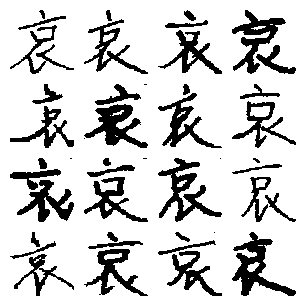 哀哀哀哀
哀哀哀哀
哀哀哀哀
哀哀哀哀